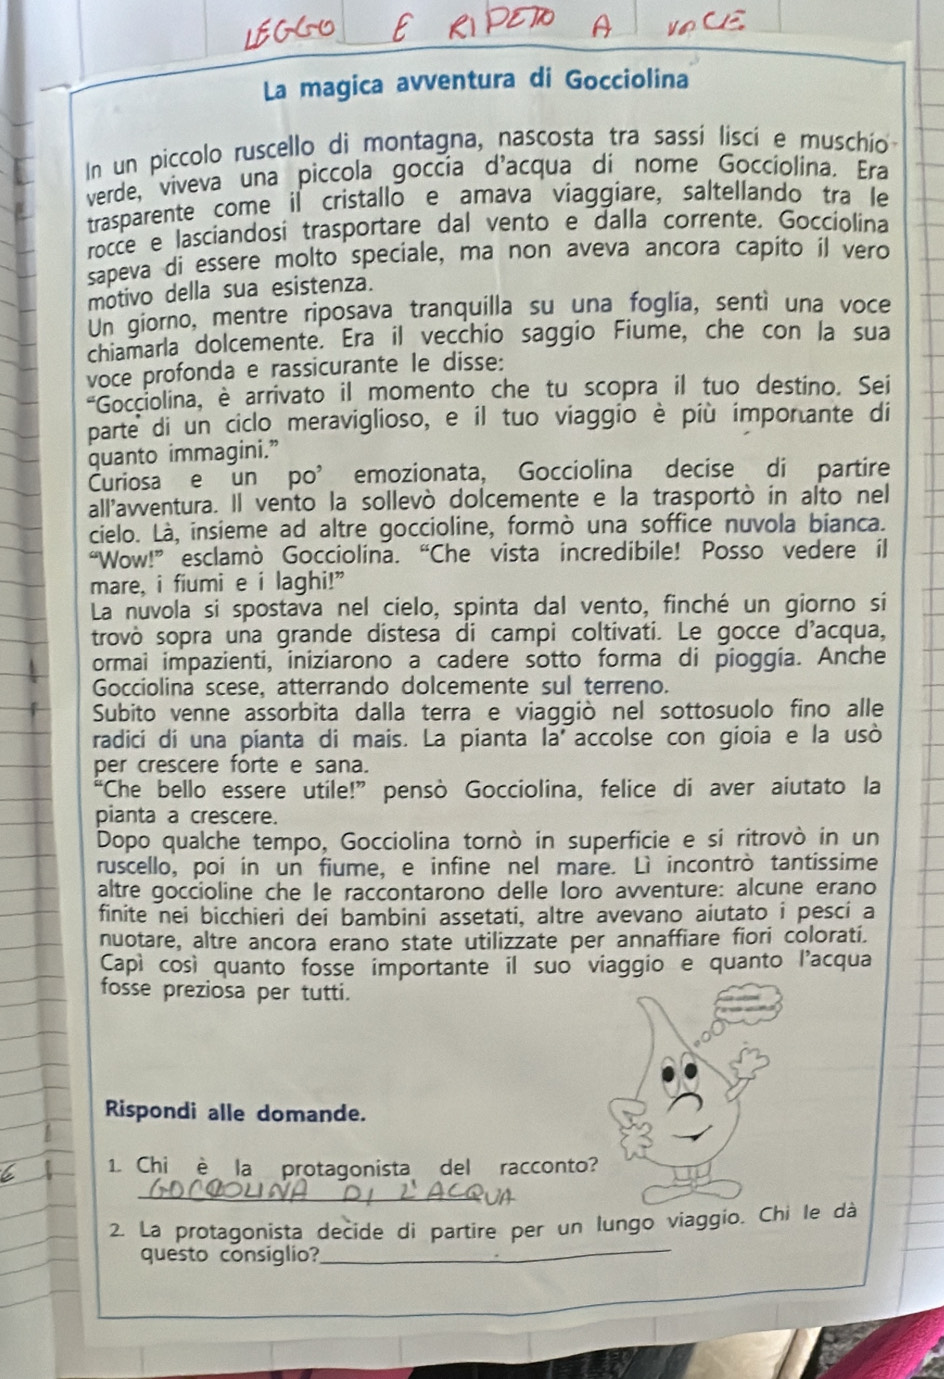 LEGGO E RIPETO A VOCE
La magica avventura di Gocciolina
In un piccolo ruscello di montagna, nascosta tra sassi lisci e muschio
verde, viveva una piccola goccia d'acqua di nome Gocciolina. Era
trasparente come il cristallo e amava viaggiare, saltellando tra le
rocce e lasciandosi trasportare dal vento e dalla corrente. Gocciolina
sapeva di essere molto speciale, ma non aveva ancora capito il vero
motivo della sua esistenza.
Un giorno, mentre riposava tranquilla su una foglia, sentì una voce
chiamarla dolcemente. Era il vecchio saggio Fiume, che con la sua
voce profonda e rassicurante le disse:
“Gocciolina, è arrivato il momento che tu scopra il tuo destino. Sei
parte di un ciclo meraviglioso, e il tuo viaggio è più importante di
quanto immagini.”
Curiosa e un po’ emozionata, Gocciolina decise di partire
all’avventura. Il vento la sollevò dolcemente e la trasportò in alto nel
cielo. Là, insieme ad altre goccioline, formò una soffice nuvola bianca.
“Wow!” esclamò Gocciolina. “Che vista incredibile! Posso vedere il
mare, i fiumi e i laghi!”
La nuvola si spostava nel cielo, spinta dal vento, finché un giorno si
trovò sopra una grande distesa di campi coltivati. Le gocce d’acqua,
ormai impazienti, iniziarono a cadere sotto forma di pioggia. Anche
Gocciolina scese, atterrando dolcemente sul terreno.
Subito venne assorbita dalla terra e viaggiò nel sottosuolo fino alle
radici di una pianta di mais. La pianta la accolse con gioia e la usò
per crescere forte e sana.
“Che bello essere utile!” pensò Gocciolina, felice di aver aiutato la
pianta a crescere.
Dopo qualche tempo, Gocciolina tornò in superficie e si ritrovò in un
ruscello, poi in un fiume, e infine nel mare. Lì incontrò tantissime
altre goccioline che le raccontarono delle loro avventure: alcune erano
finite nei bicchieri dei bambini assetati, altre avevano aiutato i pesci a
nuotare, altre ancora erano state utilizzate per annaffiare fiori colorati.
Capì così quanto fosse importante il suo viaggio e quanto l’acqua
fosse preziosa per tutti.
Rispondi alle domande.
1. Chi è la protagonista del racconto?
GOCCOLINA DI L'ACQUA
2. La protagonista decide di partire per un lungo viaggio. Chi le dà
questo consiglio?